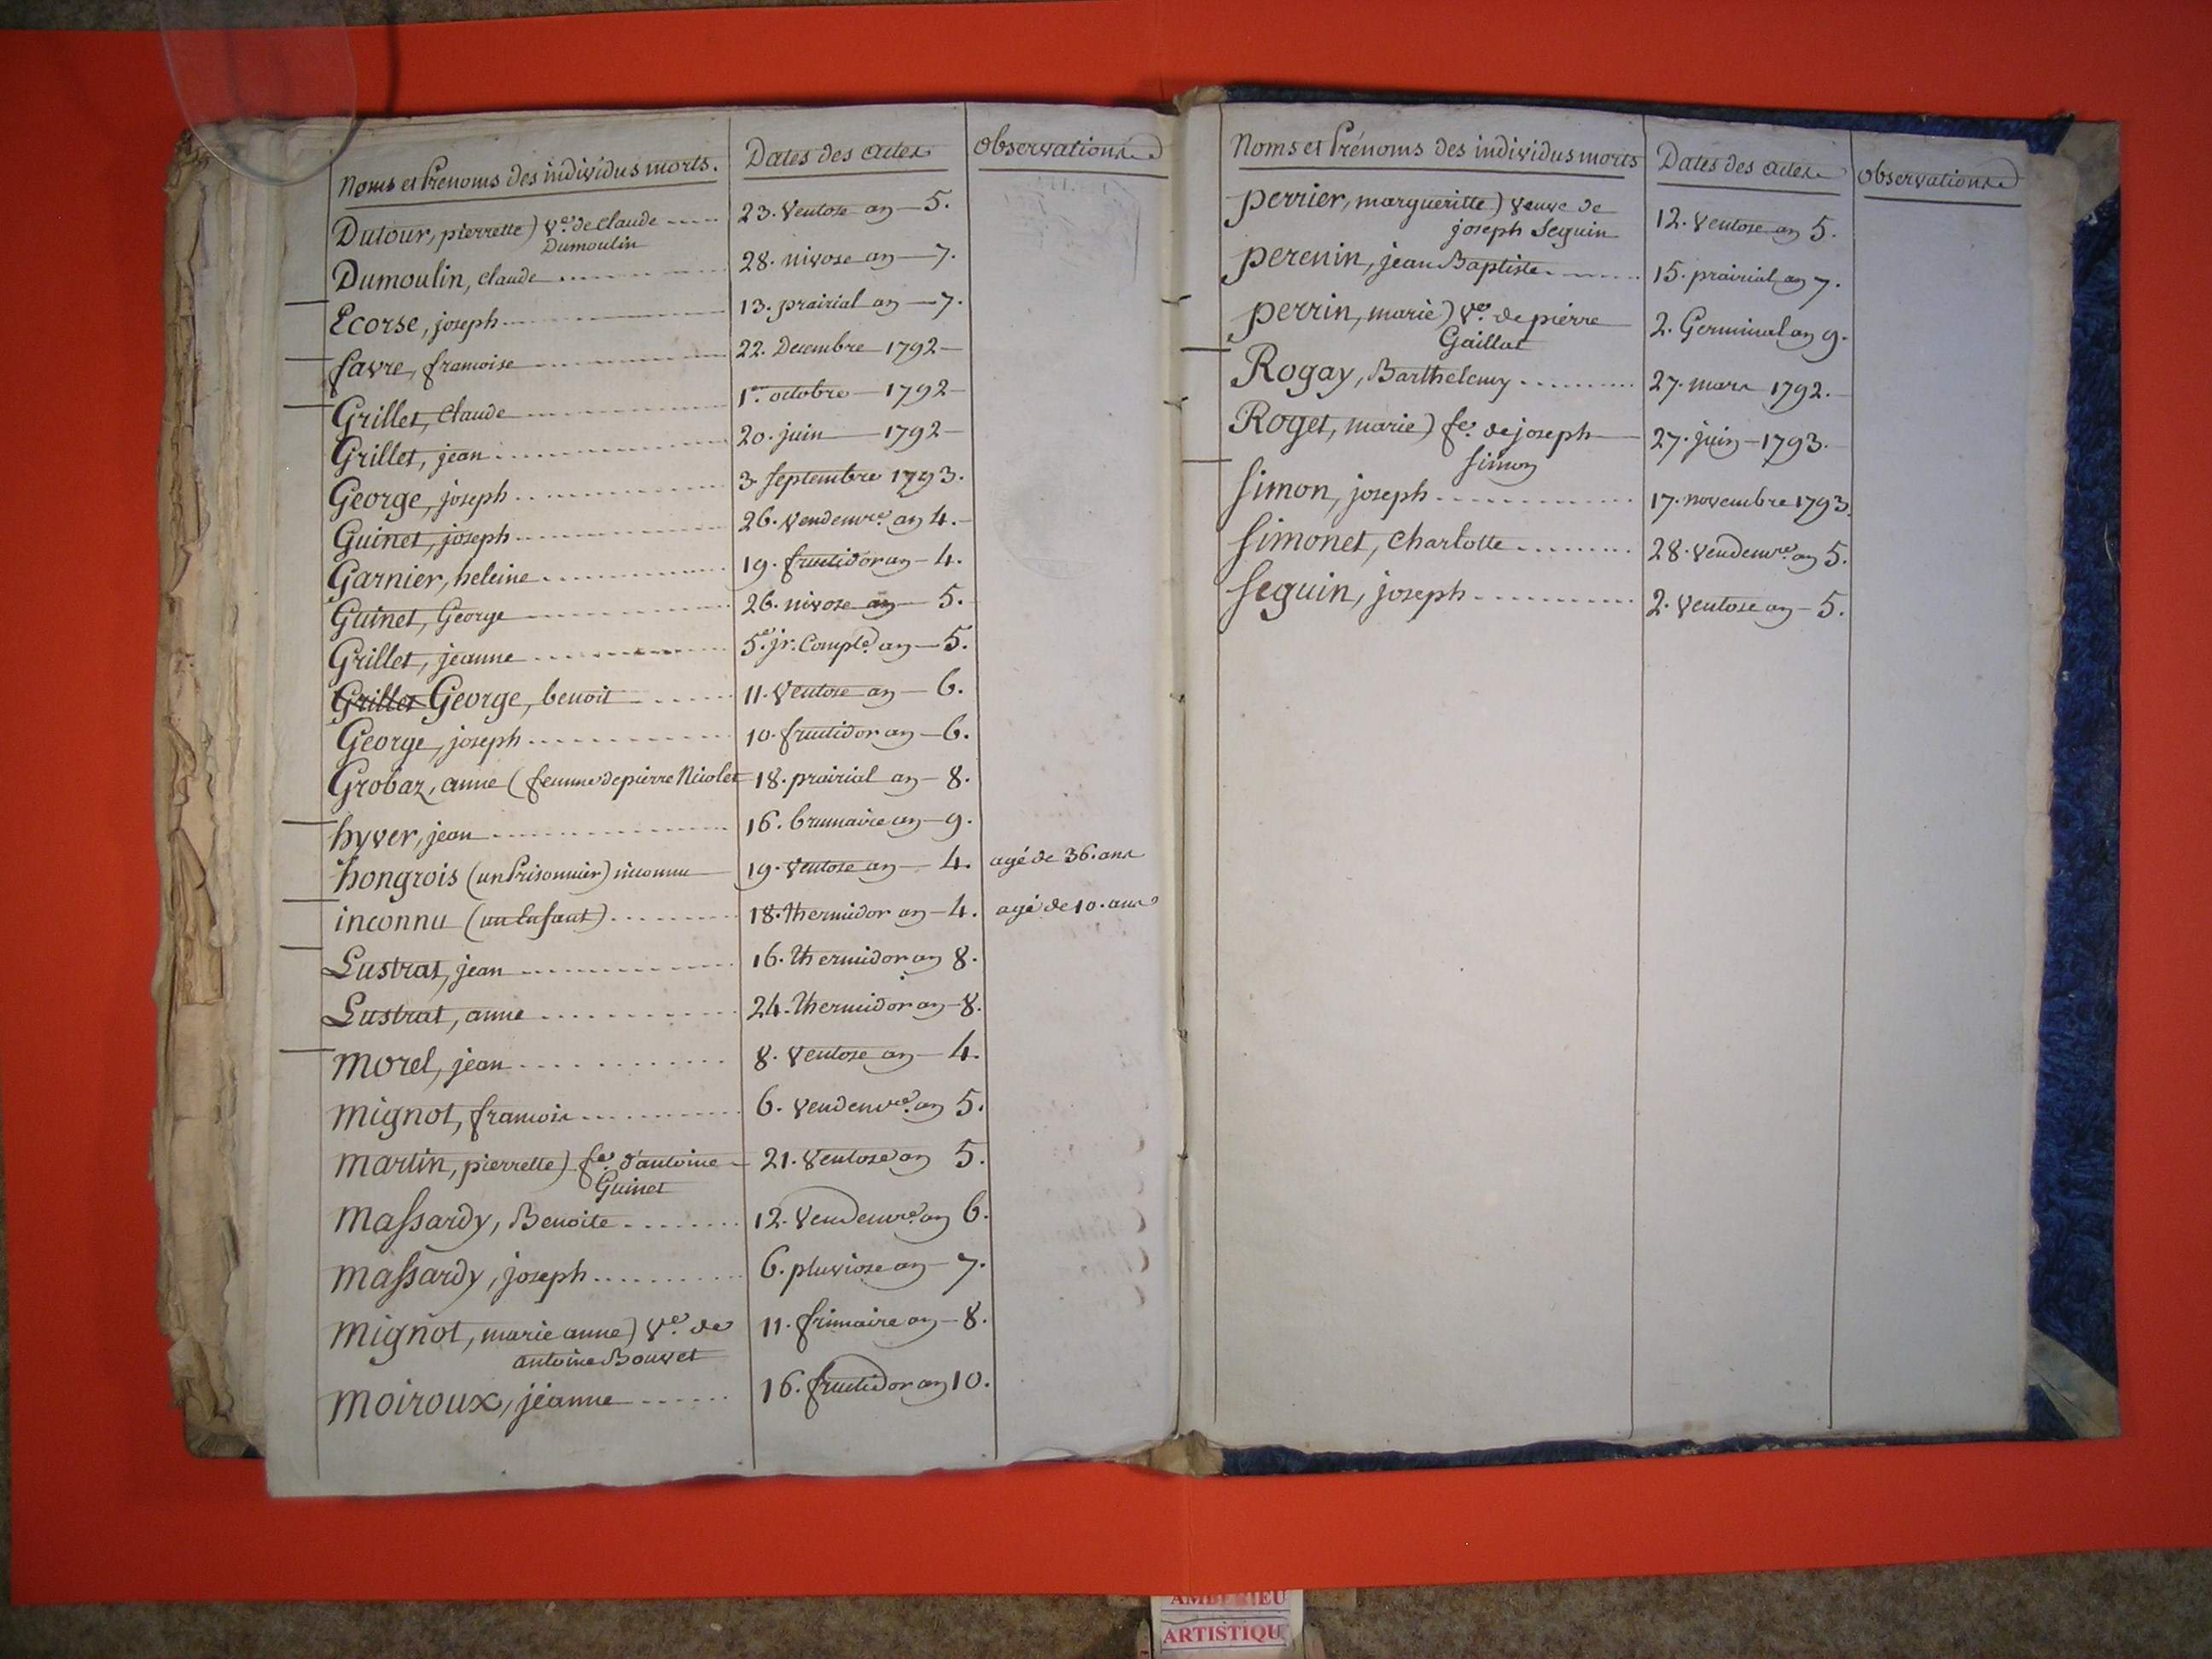 Noms et Prenoms des individus morts. Dates des actes observations
Dutour, pierrette) Ve. de claude ----- 23. Ventose an — 5.
Dumoulin
Dumoulin, claude ........... 28. nivose an — 7.
Ecorse, joseph ........... 13. prairial an — 7.
favre, francoise ........... 22. Decembre 1792 —
Grillet, Claude ........... 1er. octobre — 1792 —
Grillet, jean ........... 20. juin — 1792 —
George, joseph ........... 3. Septembre 1793.
Guinet, joseph ........... 26. Vendemre. an 4. —
Garnier, heleine ........... 19. fructidor an — 4.
Guinet, George ........... 26. nivose an — 5.
Grillet, jeanne ........... 5e. jr. Complé. an — 5.
Grillet George, benoit ...... 11. Ventose an — 6.
George, joseph ........... 10. fructidor an — 6.
Grobaz, anne (femme de pierre Nicolet 18. prairial an — 8.
hyver, jean ........... 16. brumaire an — 9.
hongrois (un Prisonnier) inconnu — 19. Ventose an — 4. agé de 36. ans
inconnu (un Enfant) .......... 18. thermidor an — 4. agé de 10. ans
Lustrat, jean ........... 16. thermidor an 8.
Lustrat, anne ........... 24. thermidor an — 8.
Morel, jean ........... 8. Ventose an — 4.
Mignot, francois ........... 6. Vendemre. an 5.
Martin, pierrette) fe. d'antoine — 21. Ventose an 5.
Guinet
Massardy, Benoite ........ 12. Vendemre. an 6.
Massardy, joseph .......... 6. pluviose an — 7.
Mignot, marie anne) Ve. de 11. frimaire an — 8.
antoine Bouvet
Moiroux, jeanne ...... 16. fructidor an 10.
Noms et Prénoms des individus morts Dates des actes observations
perrier, margueritte) veuve de 12. Ventose an 5.
joseph Seguin
perenin, jean Baptiste ........ 15. prairial an 7.
perrin, marie) Ve. de pierre 2. Germinal an 9.
Gaillat
Rogay, Barthelemy .......... 27. mars 1792.
Roget, marie) fe. de joseph — 27. juin — 1793.
Simon
Simon, joseph ............ 17. novembre 1793.
Simonet, Charlotte ......... 28. Vendemre. an 5.
Seguin, joseph ........... 2. Ventose an — 5.
ARTISTIQU